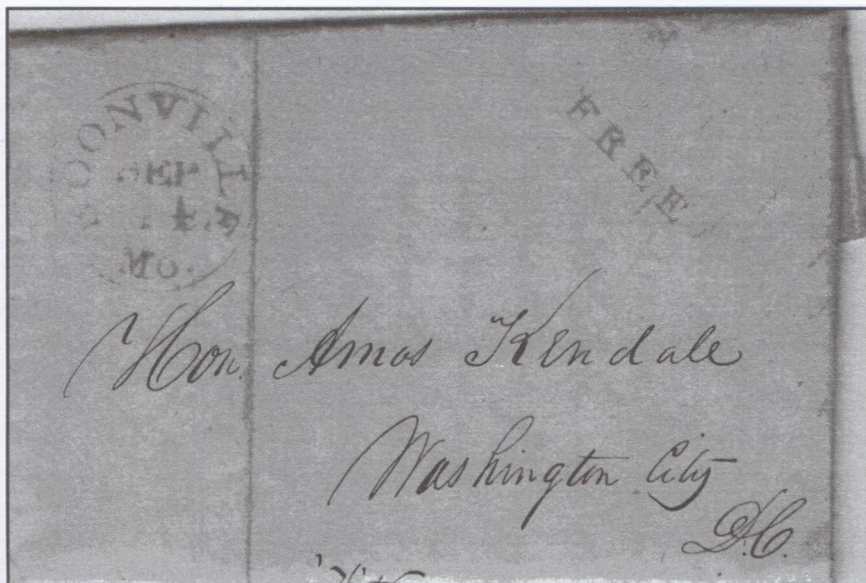 BOONVILLE
SEP
4
MO.
FREE
Hon. Amos Kendale
Washington City
D.C.